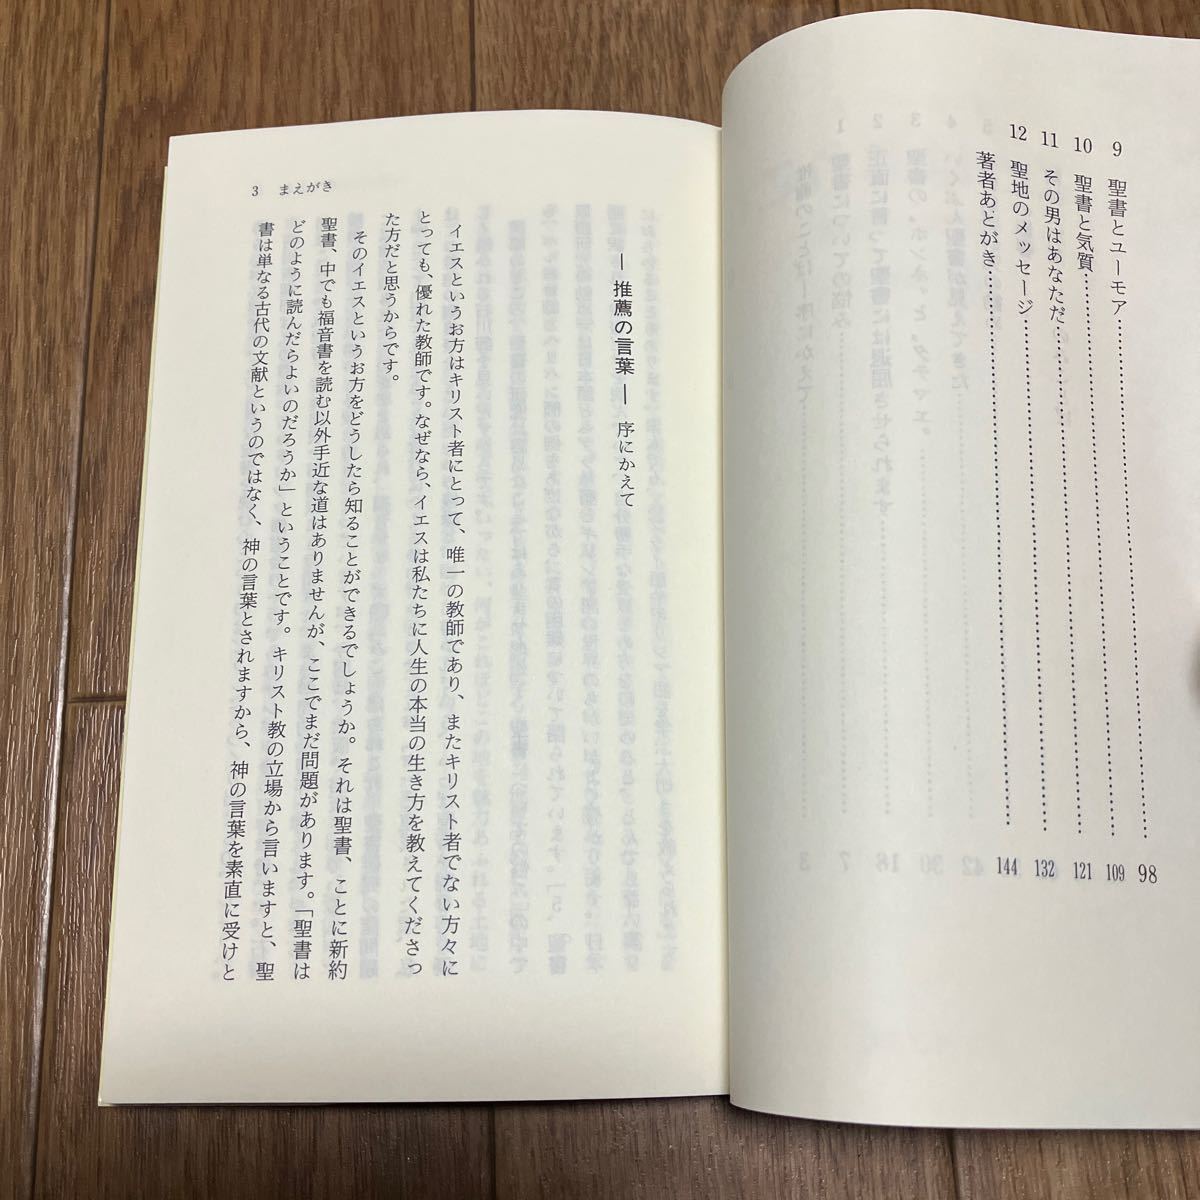 9 聖書とユーモア……98
10 聖書と気質……109
11 その男はあなただ……121
12 聖地のメッセージ……132
著者あとがき……144
― 推薦の言葉 ― 序にかえて
イエスというお方はキリスト者にとって、唯一の教師であり、またキリスト者でない方々に
とっても、優れた教師です。なぜなら、イエスは私たちに人生の本当の生き方を教えてくださっ
た方だと思うからです。
そのイエスというお方をどうしたら知ることができるでしょうか。それは聖書、ことに新約
聖書、中でも福音書を読む以外手近な道はありませんが、ここでまだ問題があります。「聖書は
どのように読んだらよいのだろうか」ということです。キリスト教の立場から言いますと、聖
書は単なる古代の文献というのではなく、神の言葉とされますから、神の言葉を素直に受けと
3 まえがき